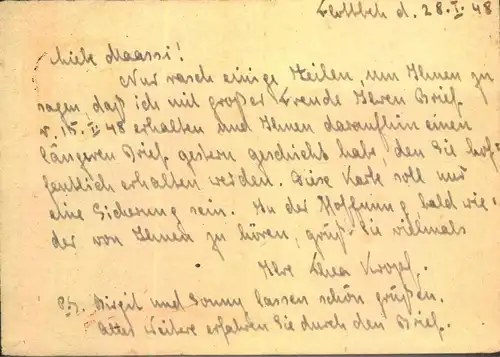 Flottbek d. 28.I.48
Liebe Maassi!
Nur rasch einige Zeilen, um Ihnen zu
sagen, daß ich mit großer Freude Ihren Brief
v. 15.I.48 erhalten und Ihnen daraufhin einen
längeren Brief gestern geschickt habe, den Sie hof=
fentlich erhalten werden. Diese Karte soll nur
eine Sicherung sein. In der Hoffnung bald wie-
der von Ihnen zu hören, grüßt Sie vielmals
Ihre Thea
PS. Birgit und Sonny lassen schön grüßen.
Alles Weitere erfahren Sie durch den Brief.